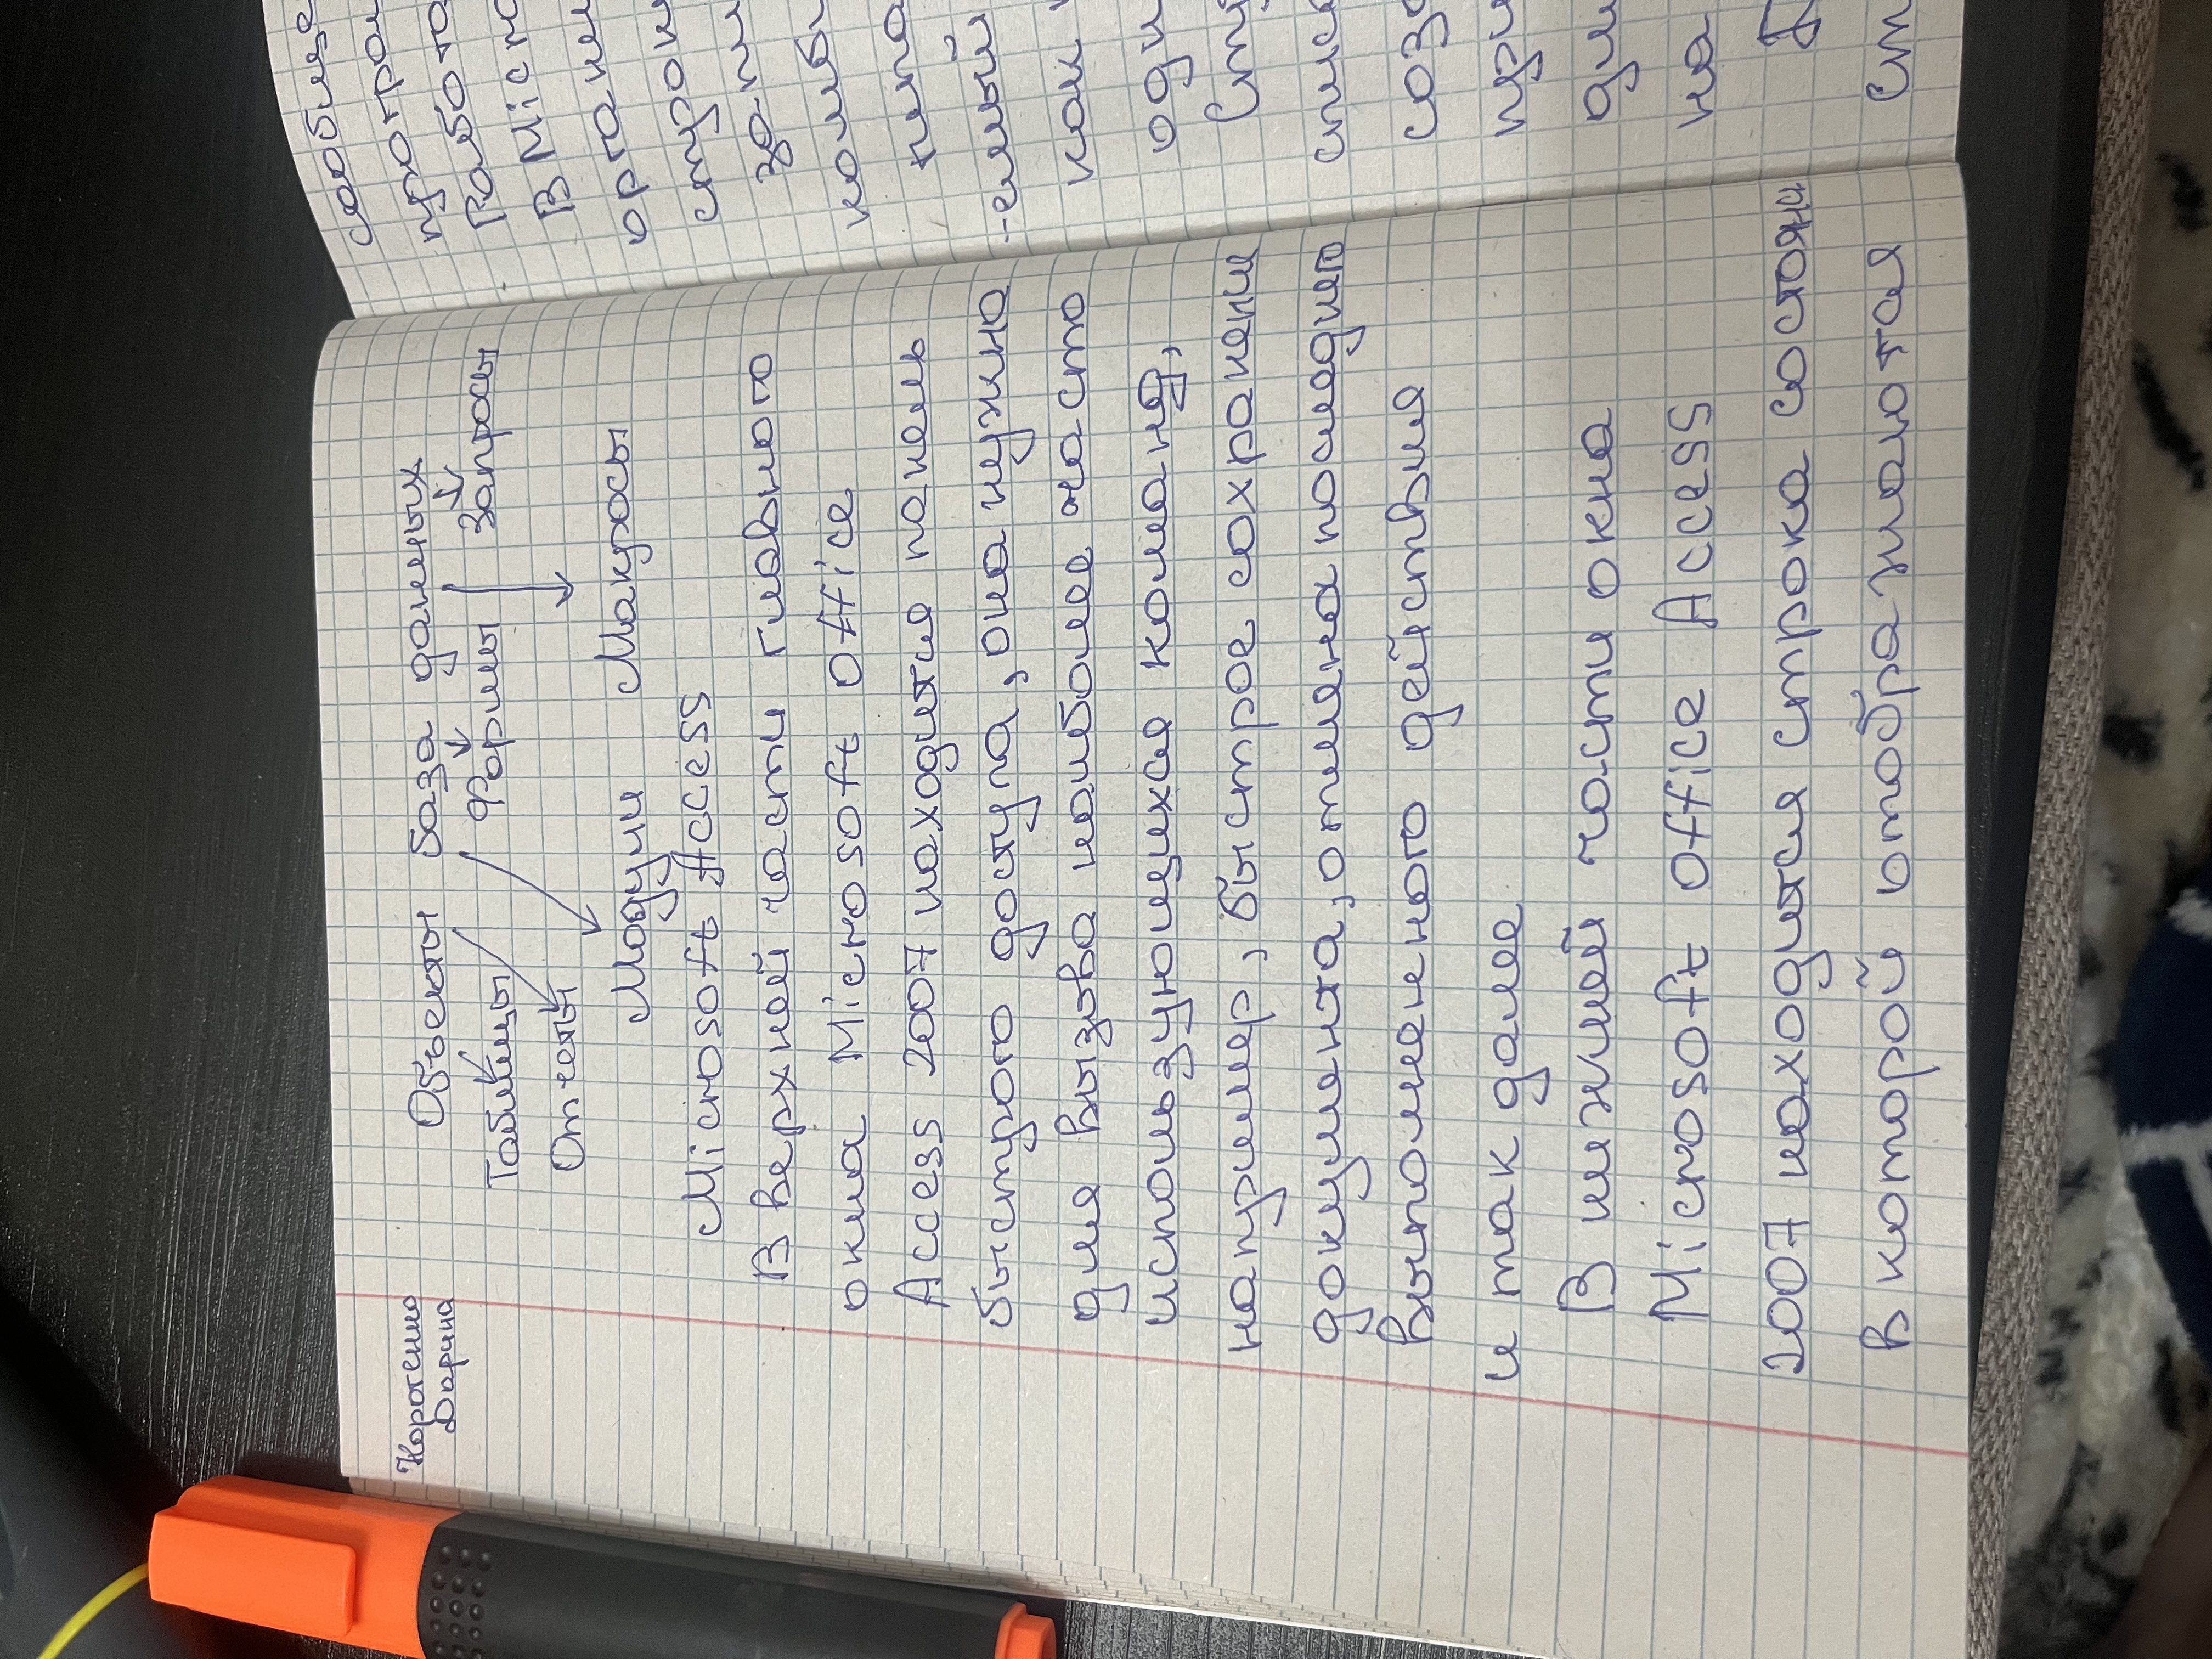 Коротенко
Дарина
Объекты база даных
Таблицы Формы Запросы
Отчеты
Модули Макросы
Microsoft Access
В верхней части главного
окна Microsoft Office
Access 2007 находится панель
быстрого доступа, она нужно
для вызова наиболее часто
использующихся команд,
например, быстрое сохранени
документа, отмена последнего
выполненного действия
и так далее
В нижней части окна
Microsoft Office Access
2007 находится строка состояни
в которой отображаются
сообще
програм
Работа
В Micro
органи
строк
запи
колон
типа
-емый
как
одн
Стр
списо
созд
при
для
на
Д
Сп